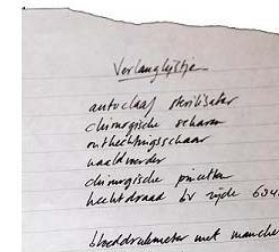 Verlanglijstje
autoclaaf sterilisator
chirurgische scharen
onthechtingsschaar
naaldvoerder
chirurgische pincetten
hechtdraad bv zijde
bloeddrukmeter met manchet